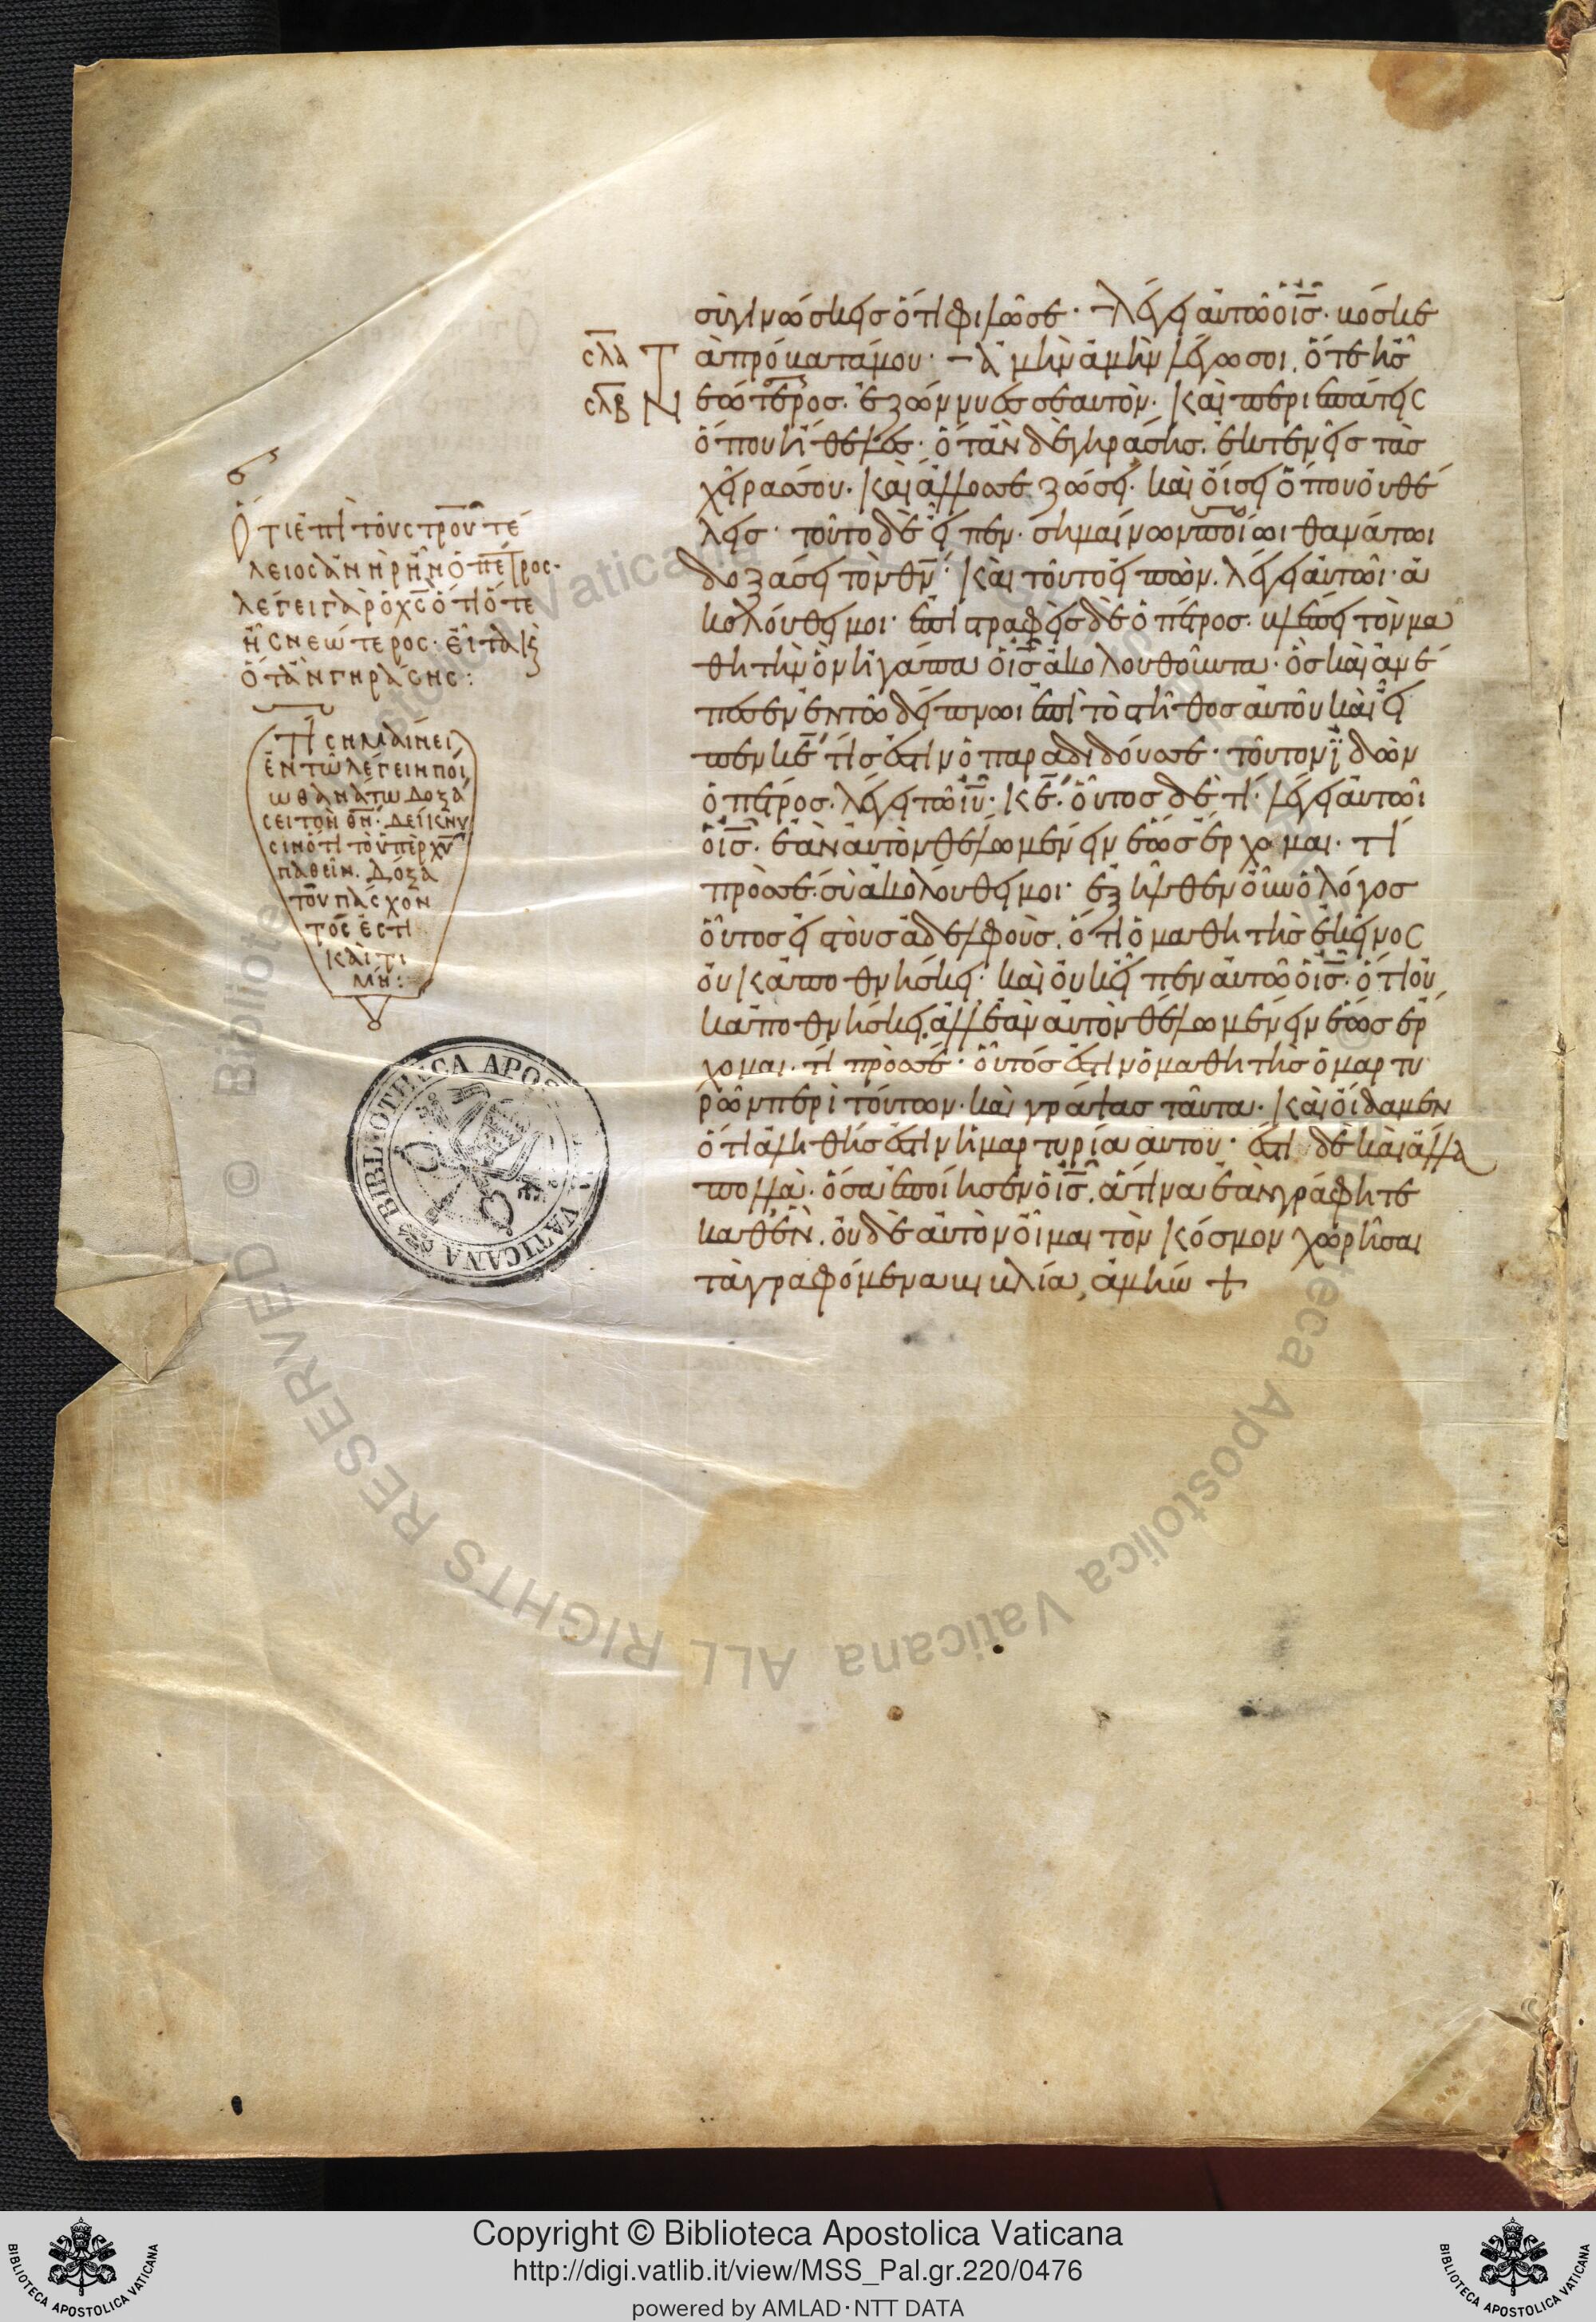 σὺ γινώσκεις ὅτι φιλῶ σε· λέγει αὐτῶ ὁ ι̅ς̅· βόσκε
σλα Τ
τὰ πρόβατά μου· ἀμὴν ἀμὴν λέγω σοι, ὅτε ἦς
σλβ Ν
νεώτερος. ἐζώννυες σεαυτὸν· καὶ περιεπάτεις
ὅπου ἤθελες· ὅταν δὲ γηράσης. ἐκτενεῖς τὰς
χεῖρας σου· καὶ ἄλλος σε ζώσει· καὶ οἴσει ὅπου οὐ θέ
λεις· τοῦτο δὲ εἶπεν· σημαίνων ποίωι θανάτωι
δοξάσει τὸν θ̅ν̅· καὶ τοῦτο εἰπὼν. λέγει αὐτῶι· ἀ
κολούθει μοι· ἐπιστραφεὶς δὲ ὁ πέτρος. βλέπει τὸν μα
θητὴν ὃν ἠγάπα ὁ ι̅ς̅ ἀκολουθοῦντα· ὃς καὶ ἀνέ
πεσεν ἐν τῶ δείπνωι ἐπὶ τὸ στῆθος αὐτοῦ καὶ εἶ
πεν κ̅ε̅ τίς ἐστιν ὁ παραδιδούς σε· τοῦτον ἰδὼν
ὁ πέτρος. λέγει τῶ ι̅υ̅· κ̅ε̅· οὗτος δὲ τί· λέγει αὐτῶι
ὁ ι̅ς̅. ἐὰν αὐτὸν θέλω μένειν ἕως ἔρχομαι. τί
πρὸς σέ· σὺ ἀκολούθει μοι· ἐξῆλθεν οὖν ὁ λόγος
οὗτος εἰς τοὺς ἀδελφοὺς. ὅτι ὁ μαθητὴς ἐκεῖνος
οὐκ ἀποθνήσκει· καὶ οὐκ εἶπεν αὐτῶ ὁ ι̅ς̅· ὅτι οὐ
κ ἀποθνήσκει. ἀλλ ἐὰν αὐτὸν θέλω μένειν ἕως ἔρ
χομαι. τί πρὸς σέ· οὗτός ἐστιν ὁ μαθητὴς ὁ μαρτυ
ρῶν περὶ τούτων· καὶ γράψας ταῦτα· καὶ οἴδαμεν
ὅτι ἀληθής ἐστιν ἡ μαρτυρία αυτου· ἔστι δὲ καὶ ἄλλα
πολλὰ. ὅσα ἐποίησεν ὁ ι̅ς̅. ἅτινα ἐὰν γράφητε
καθ ἓν. οὐδὲ αὐτὸν οἶμαι τὸν κόσμον χωρῆσαι
τὰ γραφόμενα βιβλία, ἀμήν +
Ὅτι ἐπὶ τοῦ σ̅τ̅ρ̅ο̅υ̅ τέ
λειος ἀνὴρ ἦν ὁ πέτρος·
λέγει γὰρ ὁ χ̅ς̅ ὅτι ὅτε
ἦς νεώτερος· εἶτα κ
ὅταν γηράσης:
Τί σημαίνει
ἐν τῶ λέγειν ποί
ω θανάτω δοξά
σει τὸν θ̅ν̅. δείκνυ
σιν ὅτι τὸ ὑπὲρ χ̅υ̅
παθεῖν. δόξα
τοῦ πάσχον
τός ἐστι
καὶ τι
μή:
BIBLIOTHECA APOSTOLICA VATICANA
© Biblioteca Apostolica Vaticana ALL RIGHTS RESERVED
Copyright © Biblioteca Apostolica Vaticana
http://digi.vatlib.it/view/MSS_Pal.gr.220/0476
powered by AMLAD·NTT DATA
BIBLIOTECA APOSTOLICA VATICANA
BIBLIOTECA APOSTOLICA VATICANA